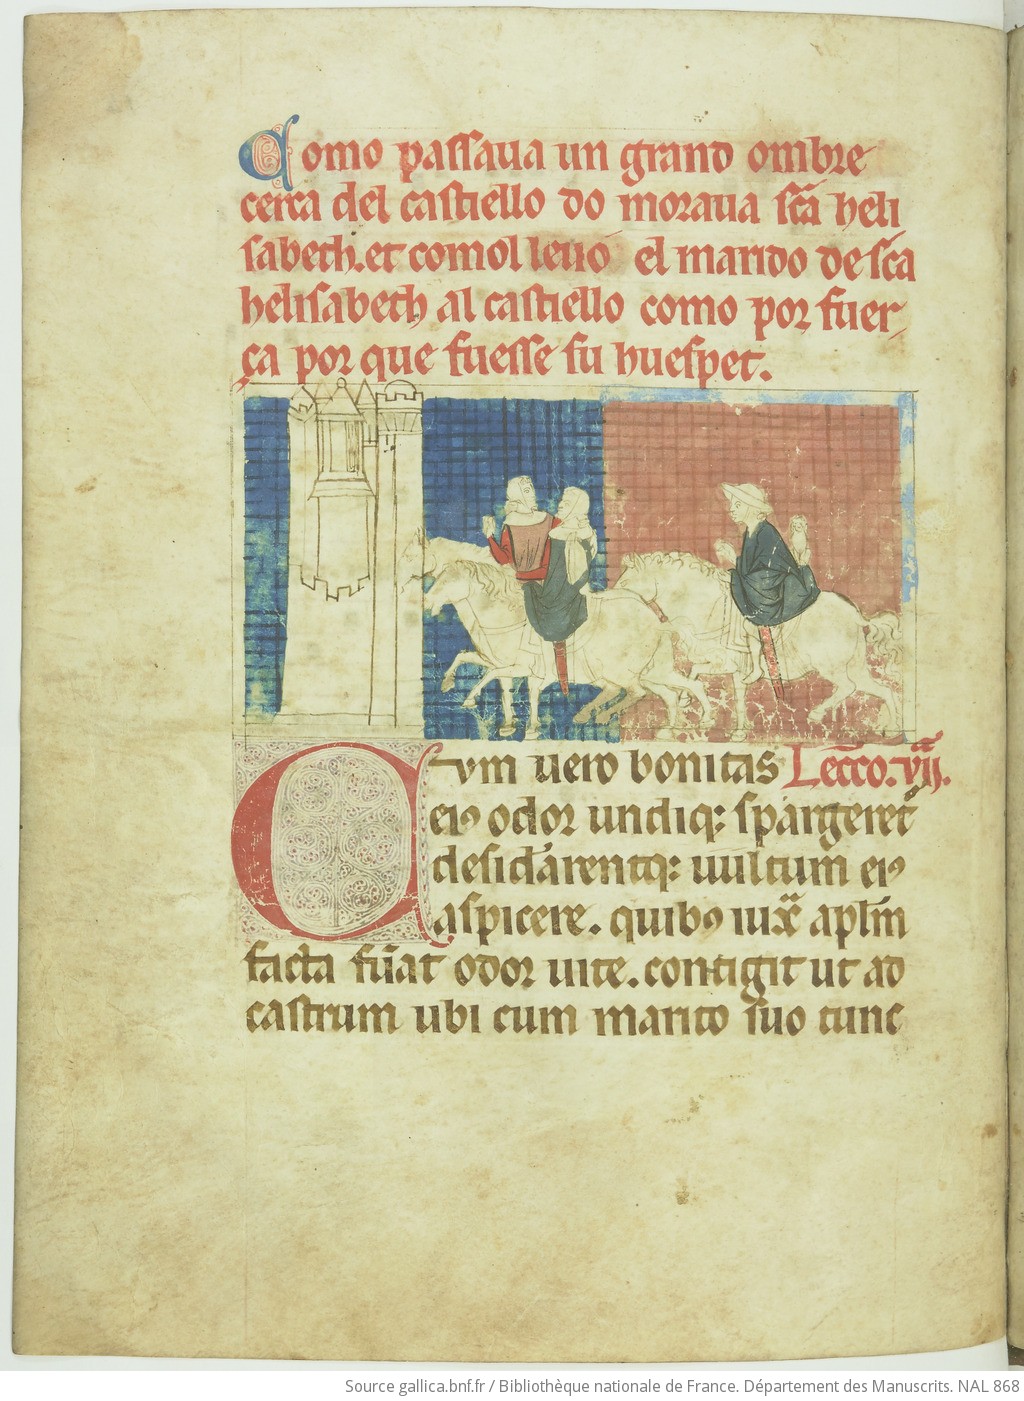 Como passaua un grand ombre
cerca del castiello do moraua sc̃a heli
sabeth. et comol leuó el marido de sca
helisabeth al castiello como por fuer
ça por que fuesse su huespet.
Cvm uero bonitas Lecc̃o. vij̃.
eiꝰ odor undiqꝫ spargeret
desid̾arentqꝫ uultum eiꝰ
aspicere. quibꝰ iux̃ apl̃m
facta fũat odor uite. contigit ut ad
castrum ubi cum marito suo tunc
Source gallica.bnf.fr / Bibliothèque nationale de France. Département des Manuscrits. NAL 868